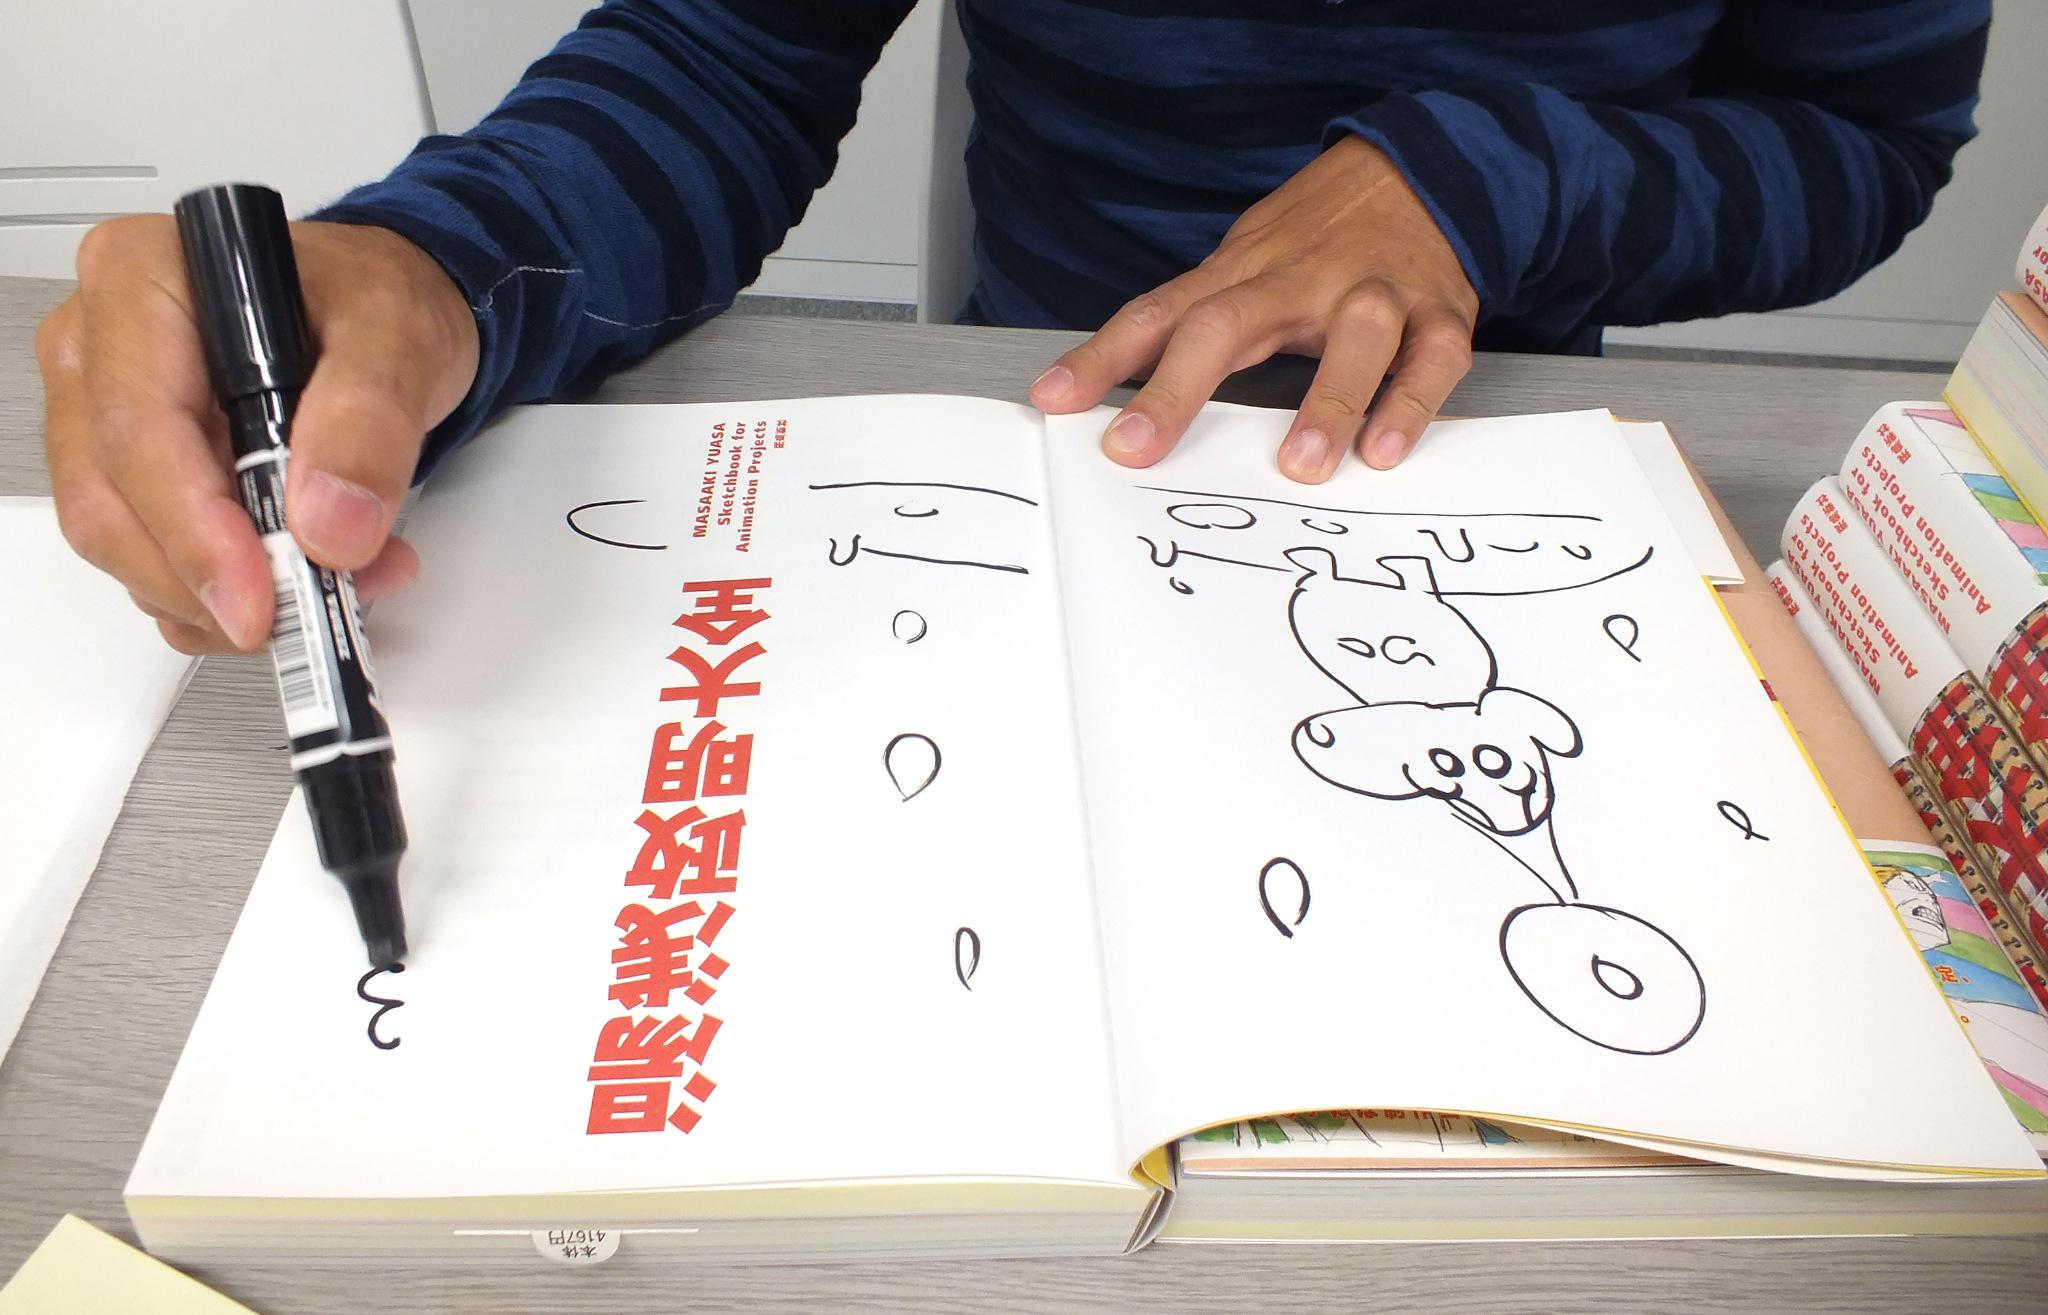 湯浅政明大全
MASAAKI YUASA
Sketchbook for
Animation Projects
飛鳥新社
本体
4167円
MASAAKI YUASA
Sketchbook for
Animation Projects
飛鳥新社
MASAAKI YUASA
Sketchbook for
Animation Projects
飛鳥新社
ASA
for
定、